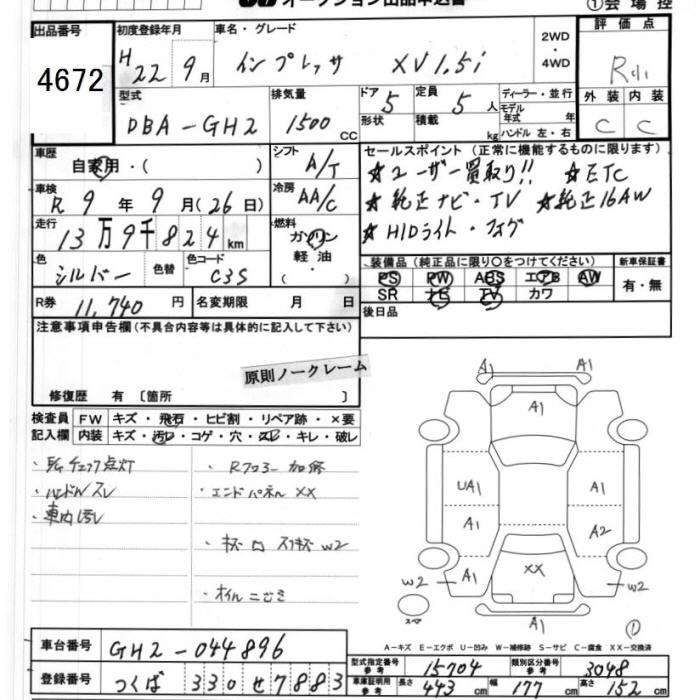 オークション出品申込書
①会場控
出品番号 4672
初度登録年月 H22 9月
車名・グレード インプレッサ XV 1.5i
2WD・4WD
評価点
外装 C 内装 C
型式 DBA-GH2
排気量 1500cc
ドア 5 形状
定員 5人 積載 kg
ディーラー・並行
モデル年式 年
ハンドル 左・右
車歴 自家用・( )
シフト A/T
セールスポイント(正常に機能するものに限ります)
☆ユーザー買取り!! ☆ETC
☆純正ナビ・TV ☆純正16AW
☆HIDライト・フォグ
車検 R9年9月(26日)
冷房 AA/C
走行 13万9千824km
燃料 ガソリン 軽油・( )
色 シルバー 色替 色コード C3S
装備品(純正品に限り○をつけてください)
PS PW ABS エアB AW
SR ナビ TV カワ
新車保証書 有・無
R券 11,740円 名変期限 月 日
後日品
注意事項申告欄(不具合内容等は具体的に記入して下さい)
原則ノークレーム
修復歴 有〔箇所 〕
検査員記入欄
FW キズ・飛石・ヒビ割・リペア跡・×要
内装 キズ・汚レ・コゲ・穴・スレ・キレ・破レ
・ハンドルスレ
・車内汚レ
・エンドパネルXX
・オイルニジミ
A1 A1
A1
UA1 A1
A1 A2
W2 A1 XX W2
スペア
A1
A-キズ E-エクボ U-凹み W-補修跡 S-サビ C-腐食 XX-交換済
車台番号 GH2-044896
登録番号 つくば 330 せ 7883
型式指定番号 参考 15704 類別区分番号 参考 3048
車庫証明用 参考 長さ 443cm 幅 177cm 高さ 152cm